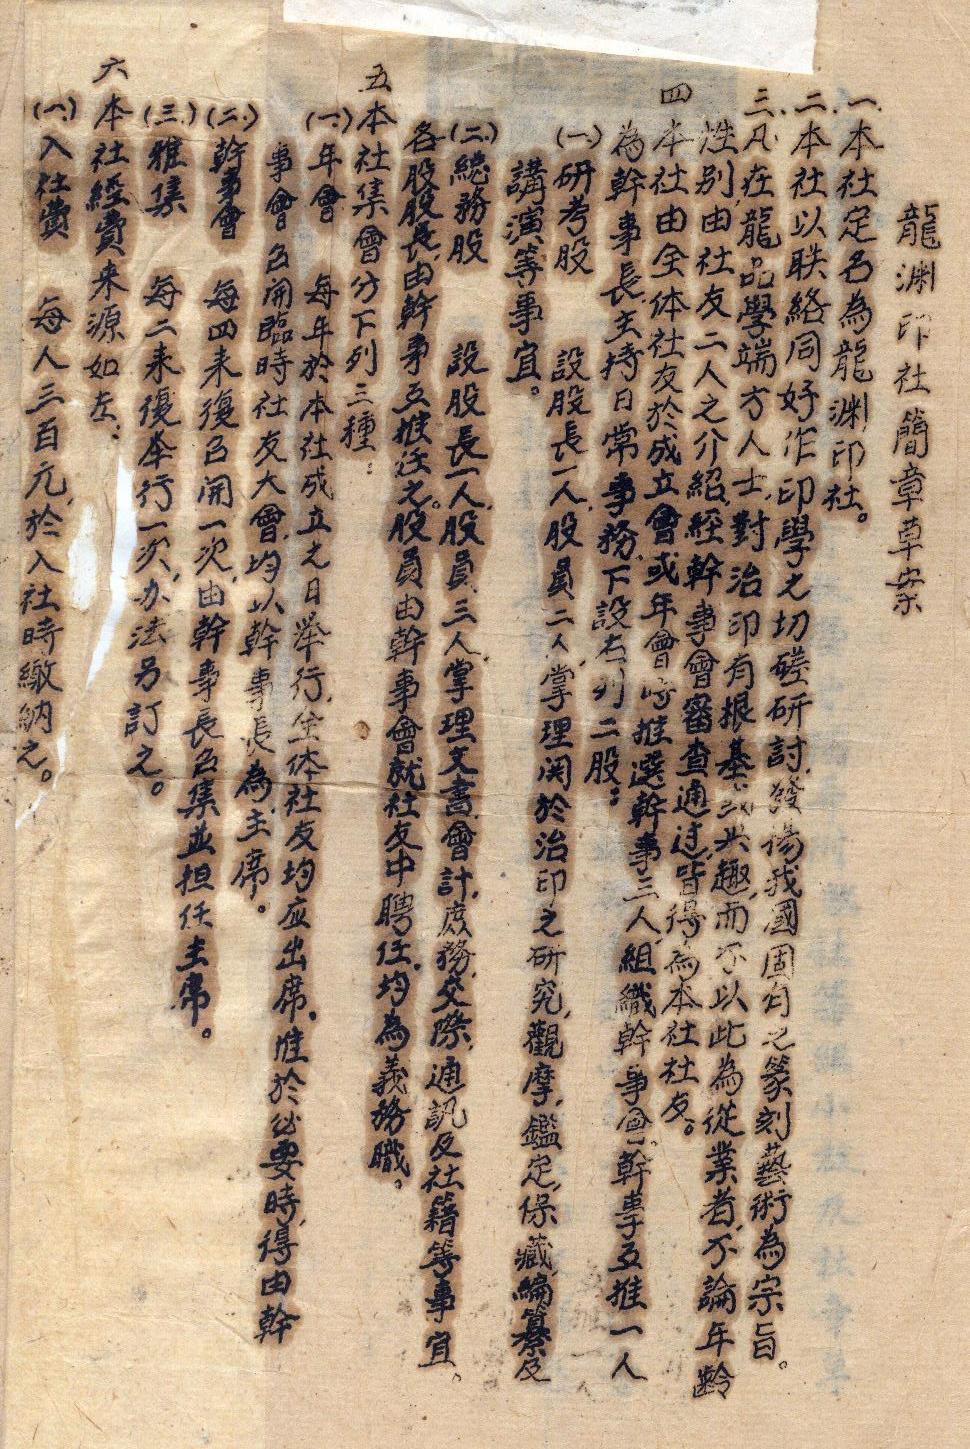 龍渊印社簡章草案
一.本社定名為龍渊印社。
二.本社以联絡同好作印學之切磋研討,發揚我國固有之篆刻藝術為宗旨。
三.凡在龍品學端方人士,對治印有根基或共趣,而不以此為從業者,不論年齡
性别,由社友二人之介紹,經幹事會審查通过,皆得為本社社友。
四 本社由全体社友於成立會或年會時推選幹事三人,組織幹事會,幹事互推一人
為幹事長,主持日常事務,下設右列二股:
(一)研考股 設股長一人,股員二人,掌理関於治印之研究,觀摩,鑑定,保藏,編纂及
講演等事宜。
(二)總務股 設股長一人,股員三人,掌理文書,會計,庶務,交際,通訊及社籍等事宜。
各股股長,由幹事互推任之。股員由幹事會就社友中聘任,均為義務職。
五 本社集會分下列三種:
(一)年會 每年於本社成立之日举行,全体社友均应出席。惟於必要時,得由幹
事會召開臨時社友大會,均以幹事長為主席。
(二)幹事會 每四来復召開一次,由幹事長召集並担任主席。
(三)雅集 每二来復举行一次,办法另訂之。
六 本社經費来源如左:
(一)入社費 每人三百元,於入社時繳納之。